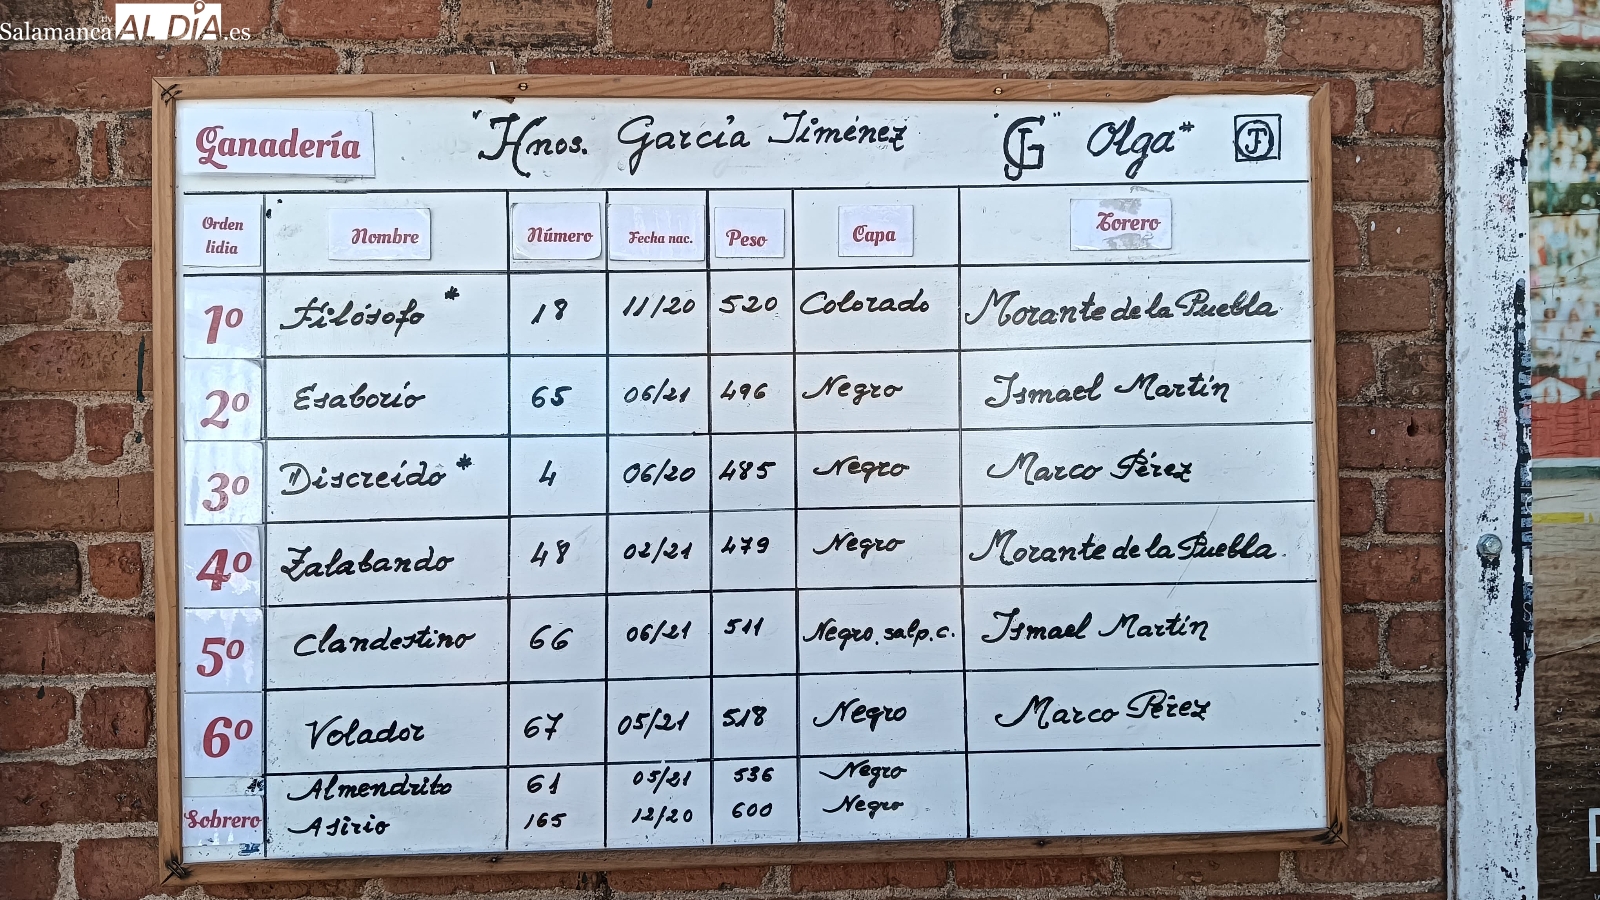 Salamanca AL DÍA.es
Ganadería "Hnos. García Jiménez" "Olga*"
Orden lidia Nombre Número Fecha nac. Peso Capa Torero
1º Filósofo * 18 11/20 520 Colorado Morante de la Puebla
2º Esaborío 65 06/21 496 Negro Ismael Martín
3º Discreído * 4 06/20 485 Negro Marco Pérez
4º Zalabando 48 02/21 479 Negro Morante de la Puebla.
5º Clandestino 66 06/21 511 Negro.salp.c. Ismael Martín
6º Volador 67 05/21 518 Negro Marco Pérez
Almendrito 61 05/21 536 Negro
Sobrero Asirio 165 12/20 600 Negro